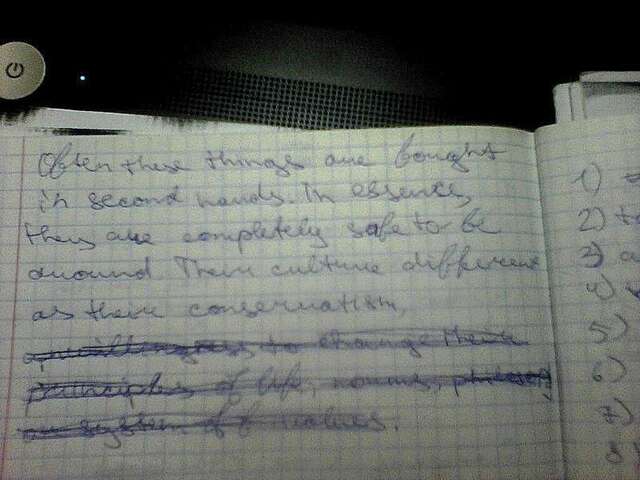 Often these things are bought
in second hands. In essence,
they are completely safe to be
around. Their culture different
as their conservatism,
unwillingness to change their
principles of life, norms, philosophy
or system of values.
1)
2) t
3) a
4)
5)
6)
7)
8)